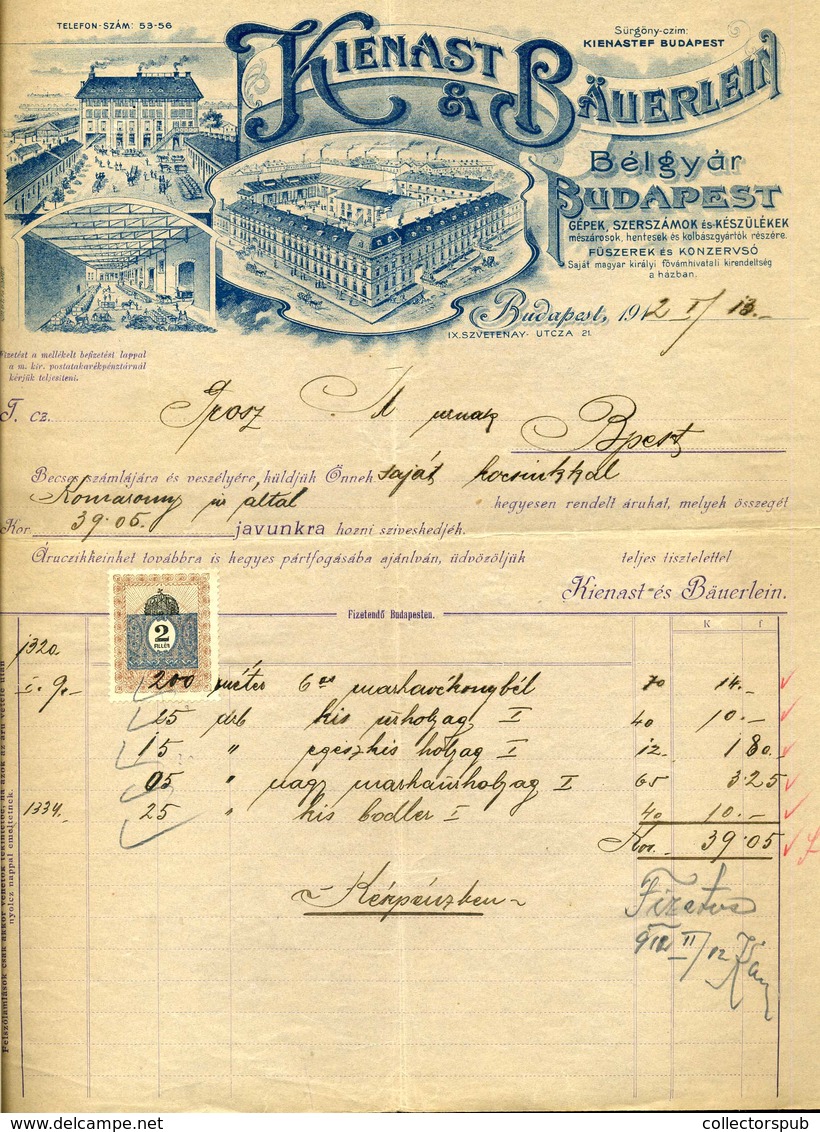 TELEFON-SZÁM: 53-56
Sürgöny-czim:
KIENASTEF BUDAPEST
KIENAST & BÄUERLEIN
Bélgyár
BUDAPEST
GÉPEK, SZERSZÁMOK és KÉSZÜLÉKEK
mészárosok, hentesek és kolbászgyártók részére.
FŰSZEREK ÉS KONZERVSÓ
Saját magyar királyi fővámhivatali kirendeltség
a házban.
Budapest, 1912 I/13.-
IX. SZVETENAY- UTCZA 21.
Fizetést a mellékelt befizetési lappal
a m. kir. postatakarékpénztárnál
kérjük teljesiteni.
T. cz. Grosz M urnak
Bpest
Becses számlájára és veszélyére küldjük Önnek saját kocsinkkal
Komaromy úr által hegyesen rendelt árukat, melyek összegét
Kor. 39.05. javunkra hozni sziveskedjék.
Áruczikkeinket továbbra is kegyes pártfogásába ajánlván, üdvözöljük teljes tisztelettel
Kienast és Bäuerlein.
2
FILLÉR
Fizetendő Budapesten.
K f
1320.
I. 9. 200 méter 6os marhavékonybél 70 14.-
25 drb kis űrhólyag I 40 10.-
15 " egészkis hólyag I 12. 1 80.-
05 " nagy marhaűrhólyag I 65 3.25
1334. 25 " kis bodler I 40 10.-
Kor. 39.05
Készpénzben
Fizetve
912 II/12
Felszólamlások csak akkor vehetők tekintetbe, ha azok az áru vétele után
nyolcz nappal emeltetnek.
www.delcampe.net
collectorspub